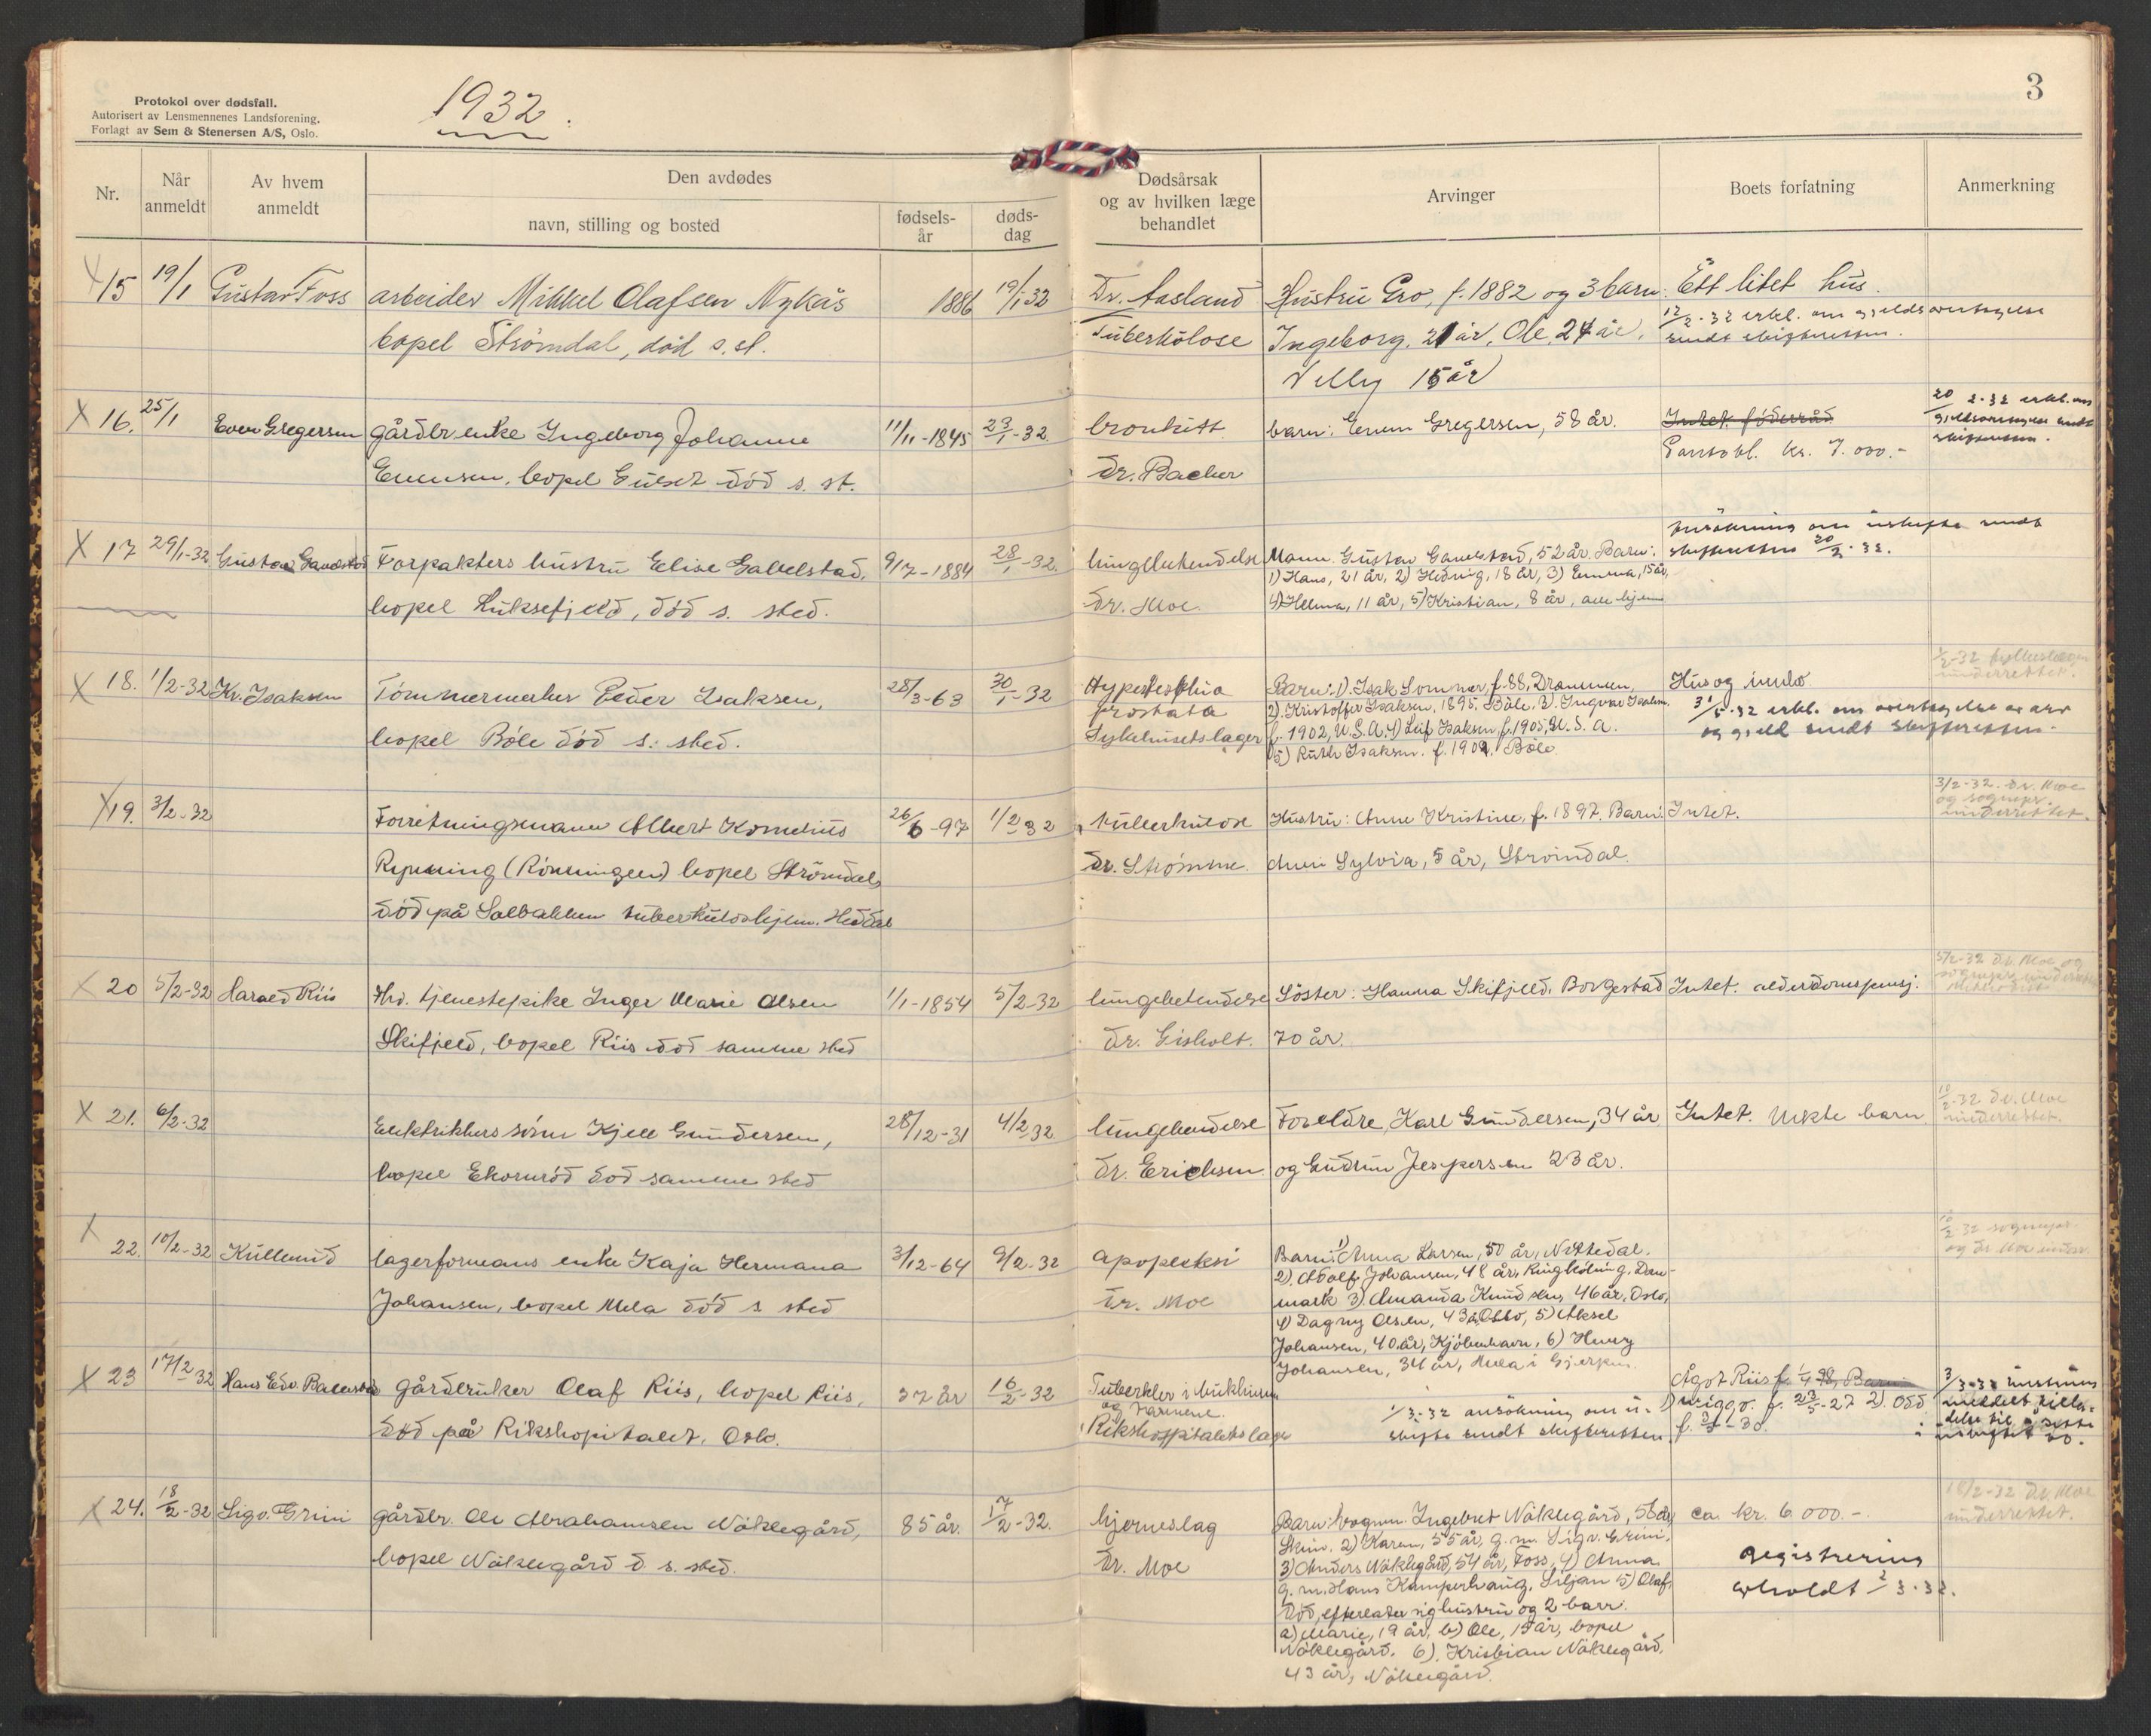 Protokol over dødsfall.
Autorisert av Lensmennenes Landsforening.
Forlagt av Sem & Stenersen A/S, Oslo.
1932.
3
Nr.
Når anmeldt
Av hvem anmeldt
Den avdødes
navn, stilling og bosted
fødsels-år
døds-dag
Dødsårsak og av hvilken læge behandlet
Arvinger
Boets forfatning
Anmerkning
X 15 19/1 Gustav Foss arbeider Mikkel Olafsen Nykås 1886 19/1 32 Dr. Aasland Hustru Gro, f. 1882 og 3 barn: Ett litet hus.
bopel Strømdal, död s. st. Tuberkulose Ingeborg, 21 år, Ole, 24 år,
12/2-32 erkl. om gjeldsovertagelse
sendt skifteretten.
Velly 15 år
X 16. 25/1 Even Gregersen gårdbr. enke Ingeborg Johanne 11/11-1845 23/1-32 bronkitt barn: Even Gregersen, 58 år. Intet. föderråd
Evensen, bopel Gulset död s. st. dr. Backer Pantobl. kr. 7.000.-
20/2-32 erkl. om
gjeldsovertagelse sendt
skifteretten.
X 17 29/1-32 Gustav Gavelstad Forpakters hustru Elise Gavelstad, 9/7-1884 28/1-32 lungebetendelse Mann Gustav Gavelstad, 52 år. Barn:
bopel Luksefjeld, död s. sted. dr. Moe.
1) Hans, 21 år, 2) Hedvig, 18 år, 3) Emma, 15 år,
4) Helma, 11 år, 5) Kristian, 8 år, alle hjem
Ansökning om uskifte sendt
skifteretten 20/2-32.
X 18. 1/2-32 Kr. Isaksen Tömmermerker Peder Isaksen, 28/3-63 30/1-32
bopel Böle död s. sted.
prostata
Sykehusets læger
Barn: 1) Isak Sommer, f. 88, Drammen,
2) Kristoffer Isaksen, 1895, Böle, 3) Ingvar Isaksen,
f. 1902, U.S.A. 4) Leif Isaksen f. 1905, U.S.A.
5) Ruth Isaksen. f. 1909, Böle
Hus og innbo
31/5-32 erkl. om overtagelse av arv
og gjeld sendt skifteretten.
underrettet.
X 19. 3/2-32 Forretningsmann Albert Kornelius 26/6-97 1/2-32 tuberkulose Hustru: Anne Kristine, f. 1897. Barn: Intet.
Rynning (Rönningen) bopel Strömdal, dr. Strömme. Sylvia, 5 år, Strömdal.
död på Solbakken tuberkuloshjem. Heddal
3/2-32. Dr. Moe
og sognepr.
underrettet.
X 20 5/2-32 Harald Riis fhv. tjenestepike Inger Marie Olsen 1/1-1854 5/2-32 lungebetendelse Söster: Hanna Skifjeld, Borgestad Intet. alderdomspensj.
Skifjeld, bopel Riis död samme sted dr. Gisholt. 70 år.
5/2-32 Dr. Moe og
sognepr. underrettet
X 21. 6/2-32 Elektrikers sönn Kjell Gundersen, 28/12-31 4/2 32 lungebendelse Foreldre, Karl Gundersen, 34 år Intet. Uekte barn
bopel Ekornröd död samme sted dr. Erichsen og Gudrun Jespersen 23 år.
10/2-32 Dr. Moe
underrettet.
X 22. 10/2-32 Kullerud lagerformanns enke Kaja Hermana 3/12-64 9/2-32 apopleksi
Johansen, bopel Mela död s sted dr. Moe
Barn: 1) Anna Larsen, 50 år, Nittedal.
2) Adolf Johansen, 48 år, Ringköbing, Dan-
mark 3) Amanda Knudsen, 46 år, Oslo,
4) Dagny Olsen, 43 år, Oslo, 5) Aksel
Johansen, 40 år, Kjöbenhavn, 6) Henry
Johansen, 34 år, Mela i Gjerpen.
10/2-32 sognepr.
og dr. Moe underr.
X 23 17/2 32 Hans Edv. Ballestad gårdbruker Olaf Riis, bopel Riis, 37 år 16/2-32 Tuberkler i bukhinnen
död på Rikshospitalet, Oslo.
og tarmene.
Rikshospitalets læge
1/3-32 ansökning om u-
skifte sendt skifteretten
Ågot Riis f. 1/4 98, Barn
1) Trygv. f. 23/5-27 2) Odd
f. -30.
3/3-32 hustruen
meddelt tilla-
delse til å sitte
i uskiftet bo.
X 24. 18/2-32 Sigv. Grini gårdbr. Ole Abrahamsen Nöklegård, 85 år. 17/2-32. hjerneslag
bopel Nöklegård d. s. sted. dr. Moe
Barn: 1) vognm. Ingebret Nöklegård, 58 år,
Skien, 2) Karen, 55 år, g. m. Sigv. Grini,
3) Anders Nöklegård, 54 år, Foss, 4) Anna
g. m. Hans Kamperhaug, Siljan 5) Olaf,
död, efterlater sig hustru og 2 barn:
a) Marie, 19 år, b) Ole, 15 år, bopel
Nöklegård. 6) Kristian Nöklegård,
43 år, Nöklegård.
ca. kr. 6 000.-
Registrering
avholdt 2/3-32.
18/2-32 Dr. Moe
underrettet.